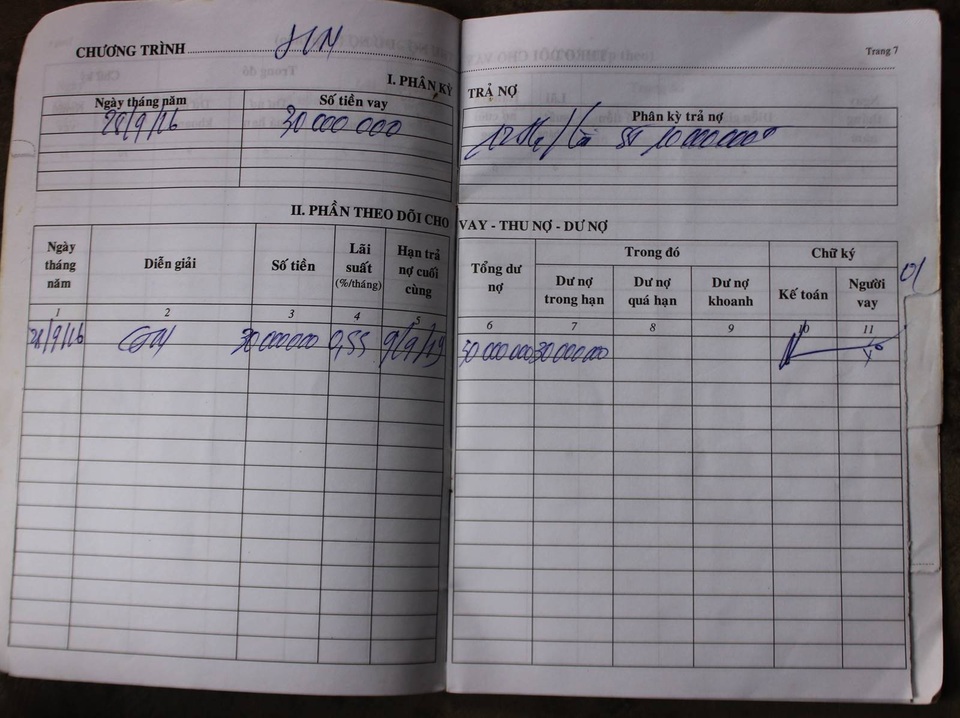 CHƯƠNG TRÌNH
Trang 7
I. PHÂN KỲ TRẢ NỢ
Ngày tháng năm Số tiền vay Phân kỳ trả nợ
28/9/16 30 000 000 10 000 000đ
II. PHẦN THEO DÕI CHO VAY - THU NỢ - DƯ NỢ
Ngày tháng năm Diễn giải Số tiền Lãi suất (%/tháng) Hạn trả nợ cuối cùng Tổng dư nợ Trong đó Chữ ký
Dư nợ trong hạn Dư nợ quá hạn Dư nợ khoanh Kế toán Người vay
1 2 3 4 5 6 7 8 9 10 11
28/9/16 30 000 000 0,55 30 000 000
01